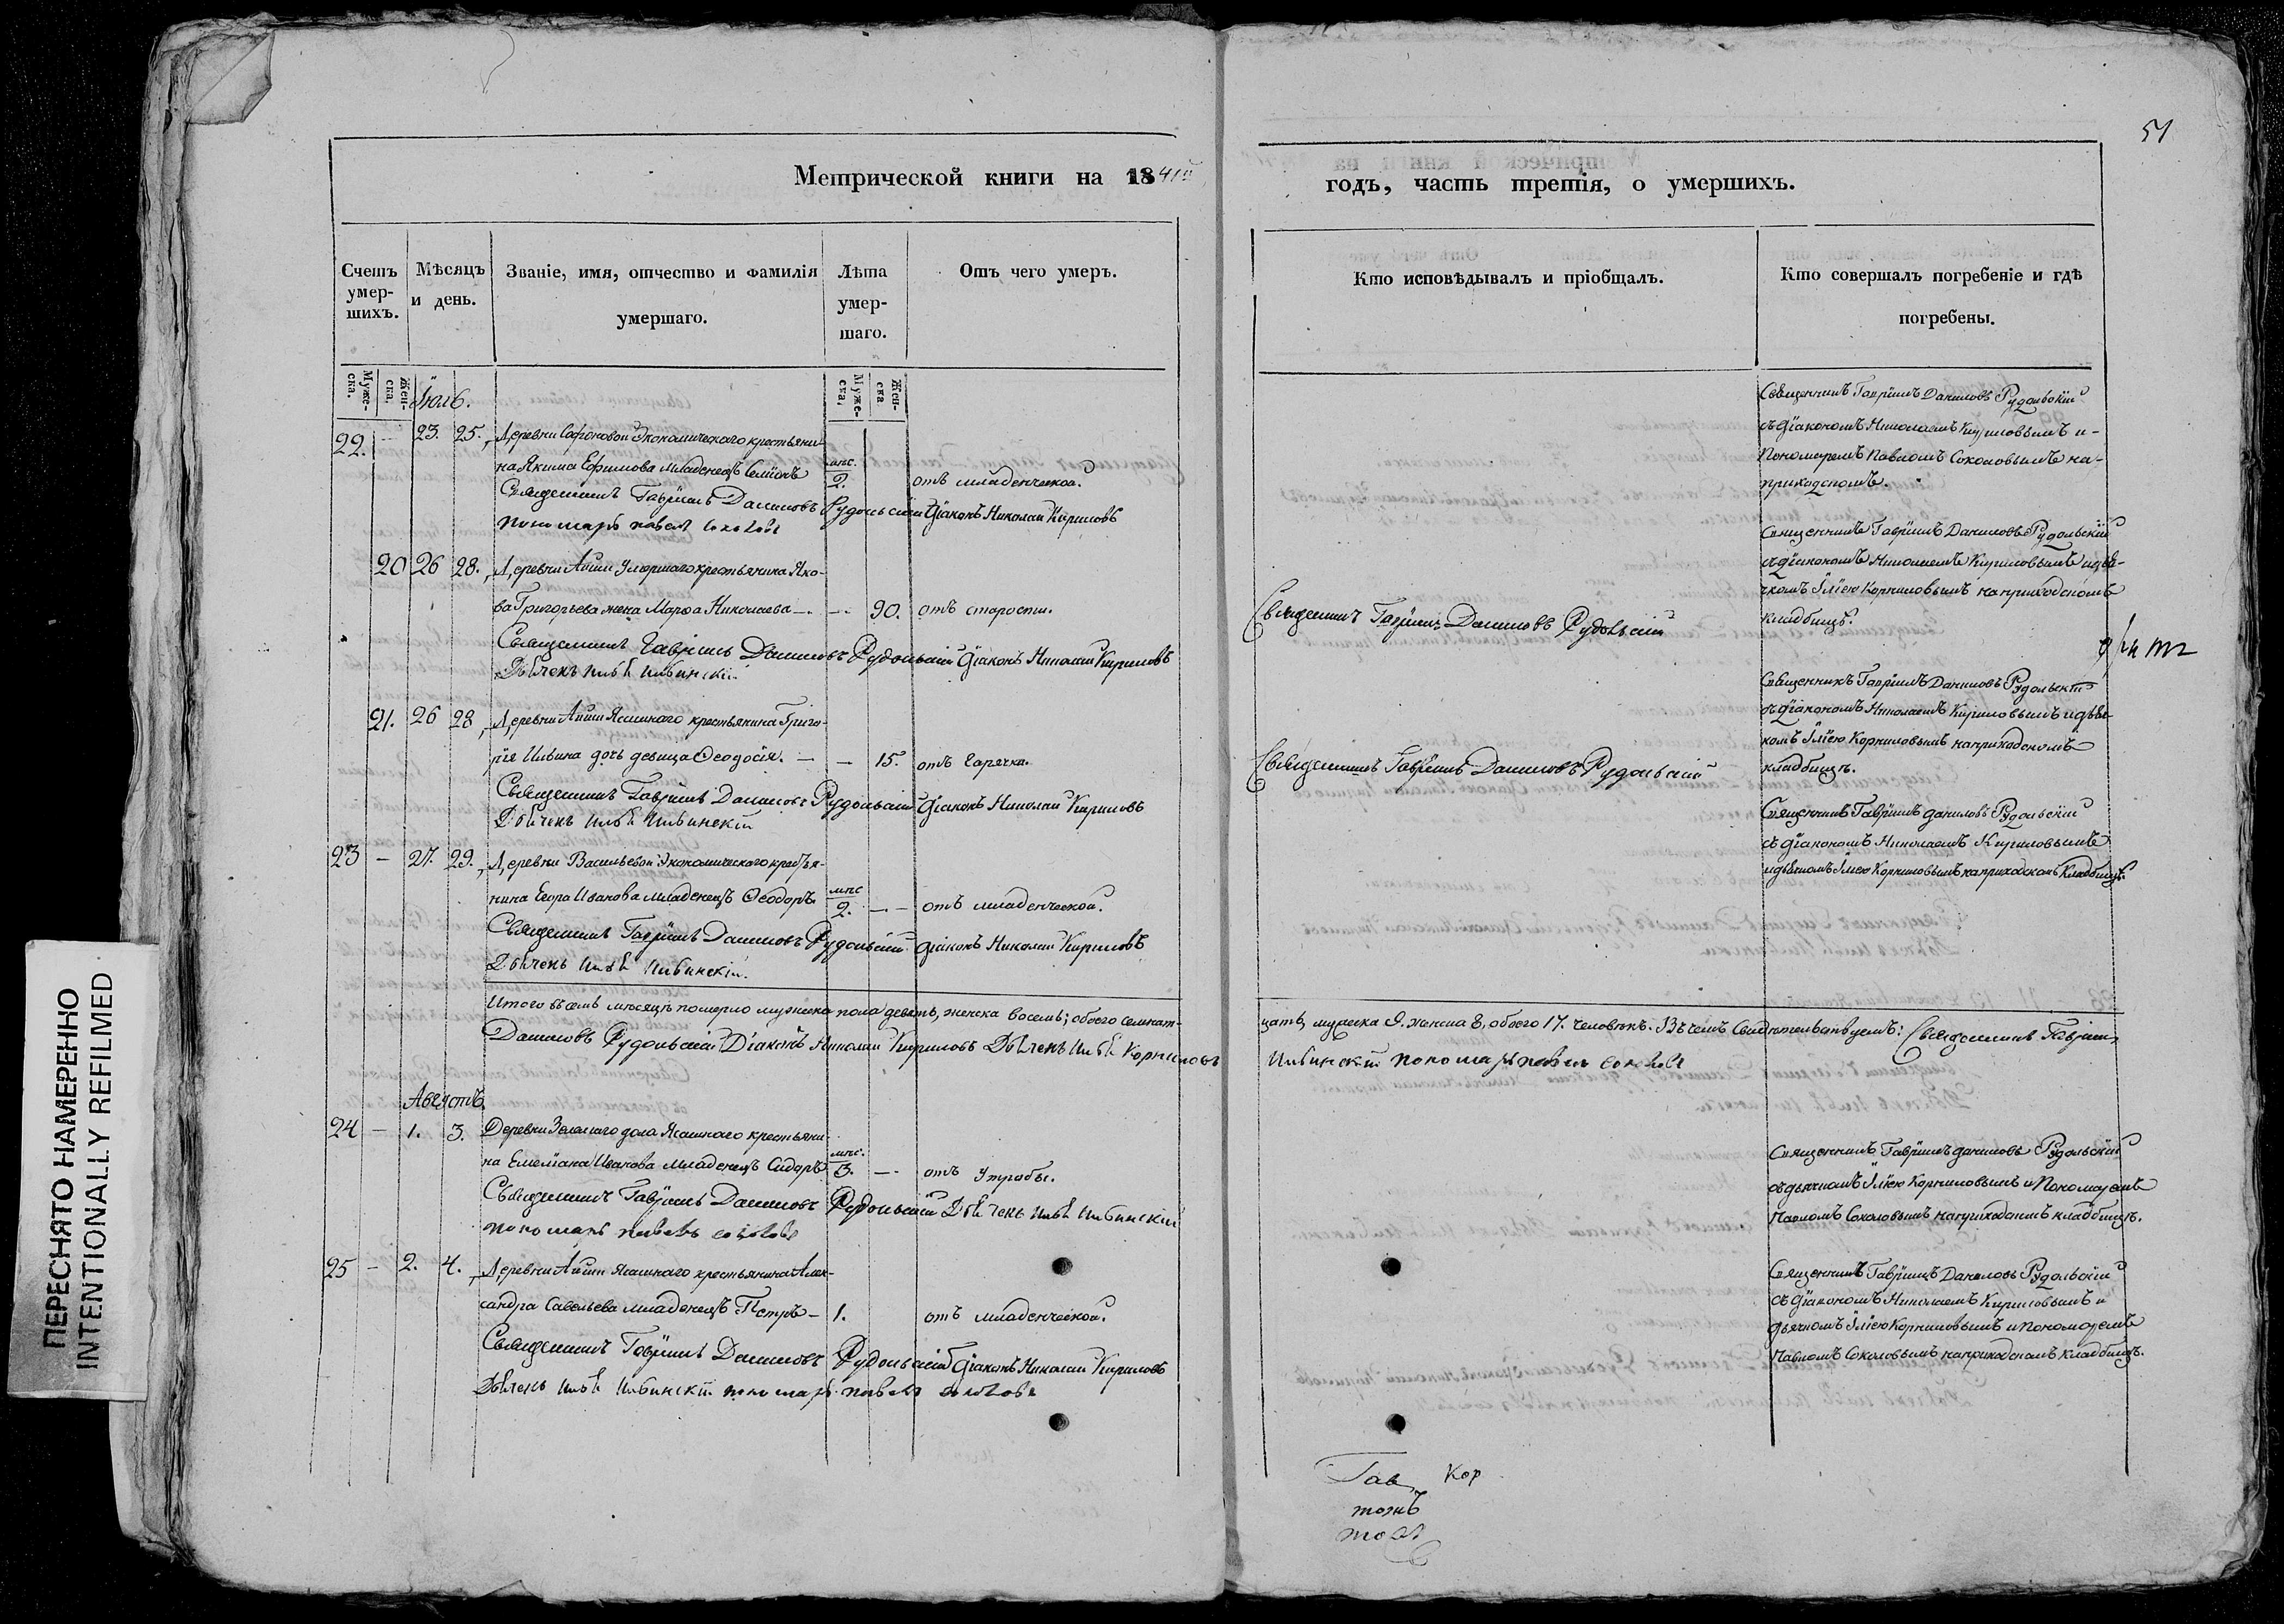 51
Метрической книги на 1841й
годъ, часть третія, о умершихъ.
Счетъ умер-
шихъ.
Мѣсяцъ
и день.
Званіе, имя, отчество и фамилія
умершаго.
Лѣта
умер-
шаго.
Отъ чего умеръ.
Кто исповѣдывалъ и пріобщалъ.
Кто совершалъ погребеніе и гдѣ
погребены.
Муже-
ска.
Жен-
ска.
Муже-
ска,
Жен-
ска
Іюль.
22. – 23. 25. Деревни Сафоновой Экономическаго крестьяни-
на Якима Ефимова младенецъ Семіонъ мѣс. 2. отъ младенческой.
Священникъ Гавріилъ Даниловъ Рудольскій Діаконъ Николай Кириловъ
пономарь павелъ соколовъ
Священникъ Гавріилъ Даниловъ Рудольскій
съ діакономъ Николаемъ Кириловымъ и-
Пономаремъ Павломъ Соколовымъ на-
приходскомъ.
20 26 28. Деревни Аиши умершаго крестьянина Яко-
ва Григорьева жена Марфа Николаева – – 90. отъ старости.
Священникъ Гавріилъ Даниловъ Рудольскій Діаконъ Николай Кириловъ
Дьячекъ Илья Ильинскій
Священникъ Гавріилъ Даниловъ Рудольскій
Священникъ Гавріилъ Даниловъ Рудольскій
съ діакономъ Николаемъ Кириловымъ и дья-
чкомъ Іліею Корниловымъ на приходскомъ
кладбищѣ.
21. 26 28 Деревни Аиши Ясашнаго крестьянина Григо-
рія Ильина дочь девица Феодосія. – – 15. отъ горячки.
Священникъ Гавріилъ Даниловъ Рудольскій Діаконъ Николай Кириловъ
Дьячекъ Илья Ильинскій
Священникъ Гавріилъ Даниловъ Рудольскій
Священникъ Гавріилъ Даниловъ Рудольскій
съ діакономъ Николаемъ Кириловымъ и дья-
комъ Іліею Корниловымъ на приходскомъ
кладбищѣ.
23 – 27. 29. Деревни Васильевой Экономическаго крестья-
нина Егора Иванова младенецъ Феодоръ мѣс 2. – – отъ младенческой.
Священникъ Гавріилъ Даниловъ Рудольскій діаконъ Николай Кириловъ
Дьячекъ Илья Ильинскій.
Священникъ Гавріилъ даниловъ Рудольскій
съ діакономъ Николаемъ Кириловымъ
и дьячкомъ Іліею Корниловымъ на приходскомъ кладбищѣ.
Итого въ семъ мѣсяцѣ померло мужеска пола девять, женска восемь; обоего семнат-
цать, мужеска 9. женска 8, обоего 17. человѣкъ. Въ чемъ Свидѣтельствуемъ: Священникъ Гавріилъ
Даниловъ Рудольскій Діаконъ Николай Кириловъ Дьячекъ Илья Корниловъ
Ильинскій пономарь павелъ соколовъ
Августъ.
24 – 1. 3. Деревни Зеленаго дола Ясашнаго крестьяни-
на Емелiана Иванова младенецъ Сидоръ мѣс. 3. – отъ утробы.
Священникъ Гавріилъ Даниловъ Рудольскій Дьячекъ Илья Ильинскій
пономарь павелъ соколовъ
Священникъ Гавріилъ даниловъ Рудольскій
съ дьячкомъ Іліею Корниловымъ и Пономаремъ
Павломъ Соколовымъ на приходскомъ кладбищѣ.
25 – 2. 4. Деревни Аиши Ясашнаго крестьянина Алек-
сандра Савельева младенецъ Петръ – 1. отъ младенческой.
Священникъ Гавріилъ Даниловъ Рудольскій Діаконъ Николай Кириловъ
Дьячекъ Илья Ильинскій пономарь павелъ соколовъ
Священникъ Гавріилъ Даниловъ Рудольскій
съ діакономъ Николаемъ Кириловымъ и
дьячкомъ Іліею Корниловымъ и пономаремъ
Павломъ Соколовымъ на приходскомъ кладбищѣ.
Гав Кор
ПЕРЕСНЯТО НАМЕРЕННО
INTENTIONALLY REFILMED